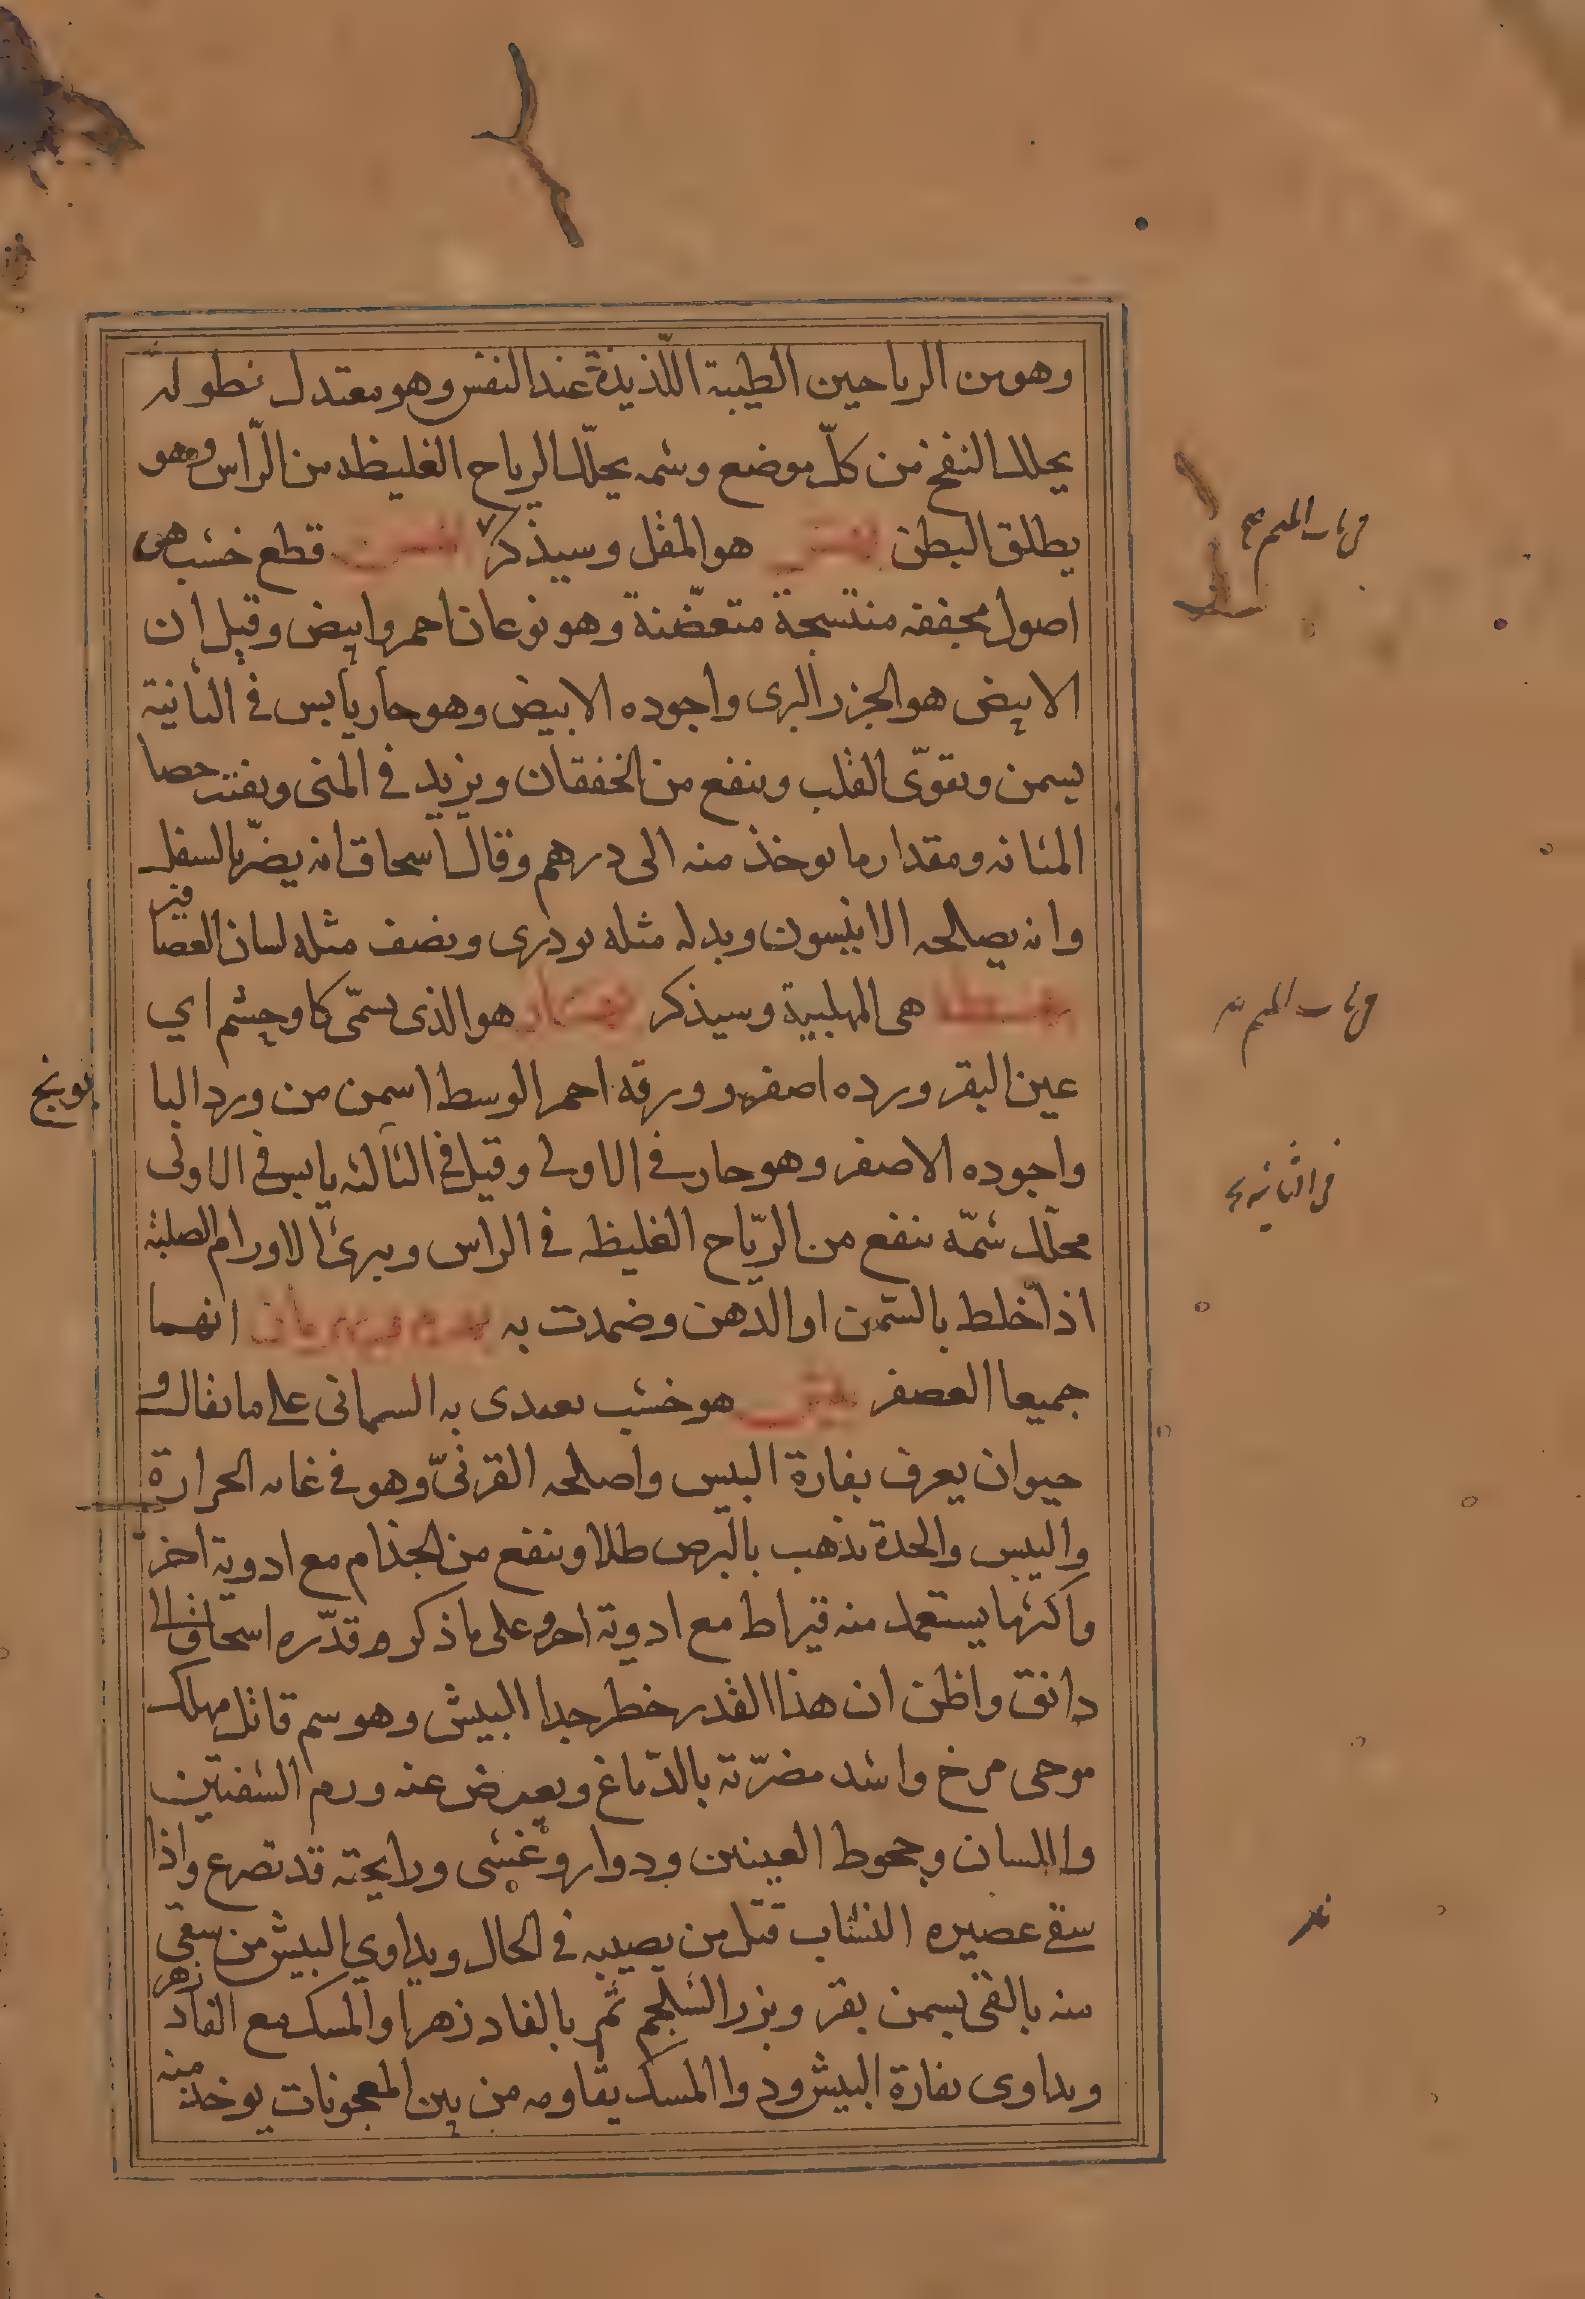 وهو من الرياحين الطيبة اللذيذة عند النفس وهو معتدل نطوله
يحلل النفخ من كلّ موضع وشمه يحلّل الرياح الغليظه من الرّاس وهو
يطلق البطن هو المقل وسيذكر قطع خشب هى
اصول مجففه متشنجة متغضّنة وهو نوعان احمر وابيض وقيل ان
الابيض هو الجزر البرى واجوده الابيض وهو حار يابس فى الثانية
يسمن ويقوّى القلب وينفع من الخفقان ويزيد فى المنى ويفتت حصا
المثانه ومقدار ما يوخذ منه الى درهم وقال اسحاق انه يضرّ بالسفل
وانه يصالحه الانيسون وبدله مثله تودرى ونصف مثله لسان العصافير
هى المهلبية وسيذكر هو الذى يسمّى كاوچشم اي
عين البقر ورده اصفر وورقه احمر الوسط اسمن من ورد البا
بونج
واجوده الاصفر وهو حار فى الاولى وقيل فى الثالثه يابس فى الاولى
محلّل شمّه ينفع من الرّياح الغليظه فى الرّاس ويبرئ الاورام الصلبة
اذا خلط بالسّمن او الدّهن وضمدت به انهما
جميعا العصفر هو خشب يغتدى به السمانى على ما يقال و
حيوان يعرف بفارة البيس واصلحه القرنىّ وهو فى غايه الحرارة
واليبس والحدة يذهب بالبرص طلا وينفع من الجذام مع ادوية اخر
واكثر ما يستعمل منه قيراط مع ادوية اخر على ما ذكر وقدّره اسحاق الى
دانق واظن ان هذا القدر خطر جدا البيش وهو سم قاتل مهلك
موحى مرخ واشد مضرّته بالدّماغ ويعرض عنه ورم الشفتين
واللسان وجحوط العينين ودوار وغشى ورايحته قد تصرع واذا
سقى عصيره النشاب قتل من يصيبه فى الحال ويداوي البيش من سقى
منه بالقى بسمن بقر وبزر الشلجم ثم بالفادزهر او المسك مع الفادزهر
ويداوى بفارة البيش ودوا المسك يقاومه من بين المعجونات يوخذ منه
فى الثانية